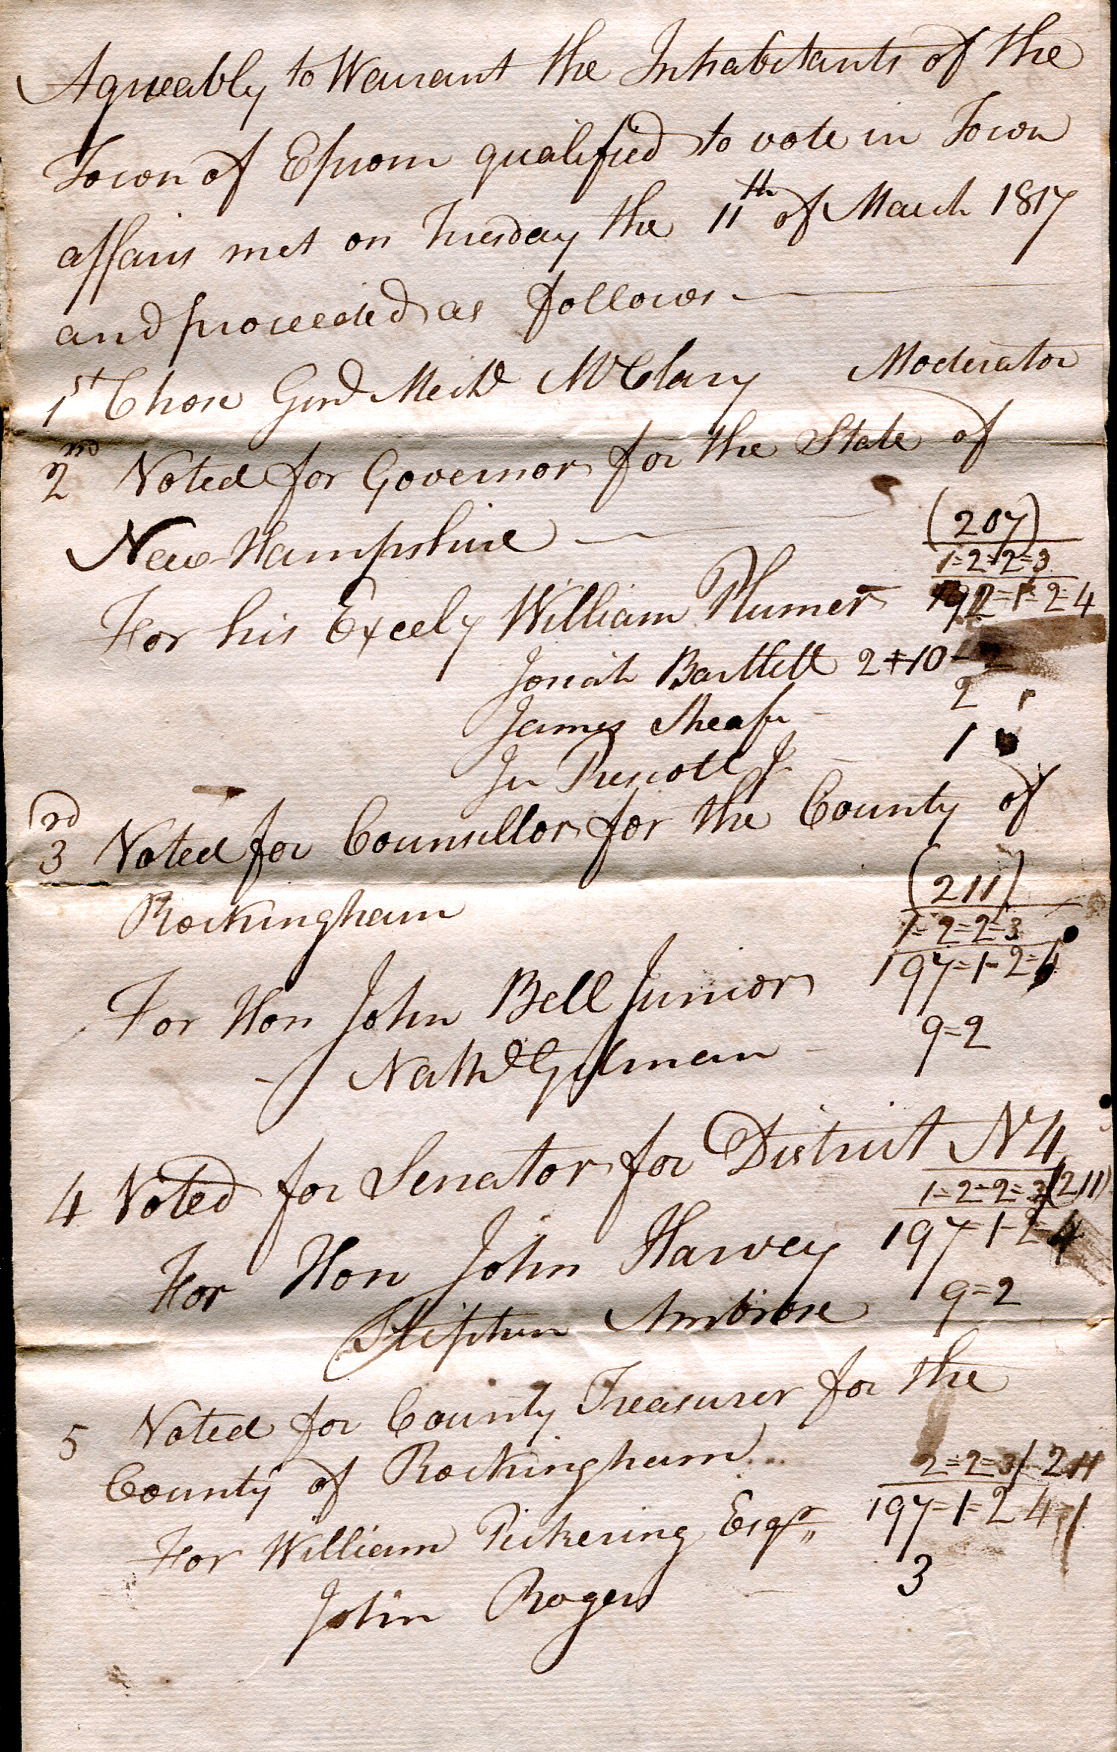 Agreeably to Warrant the Inhabitants of the
Town of Epsom qualified to vote in Town
affairs met on Tuesday the 11th of March 1817
and proceeded as follows —
1st Chose Genl Michl McClary Moderator
2nd Voted for Governor for the State of
New-Hampshire —
(207)
1=2=2=3
For his Excely William Plumer 192=1=2=4
Josiah Bartlett 2+10-2
James Sheafe - 2
Jn Prescott Jr - 1
3rd Voted for Counsellor for the County of
Rockingham
(211)
1=2=2=3
For Hon John Bell Junior 197=1=2=4
Nathl Gilman - 9=2
4 Voted for Senator for District N 4
1=2=2=3 (211)
For Hon John Harvey 197-1-2=4
Stephen Ambrose 9=2
5 Voted for County Treasurer for the
County of Rockingham
2=2=3/ 211
For William Pickering Esqr 197=1=2 4=1
John Rogers - 3